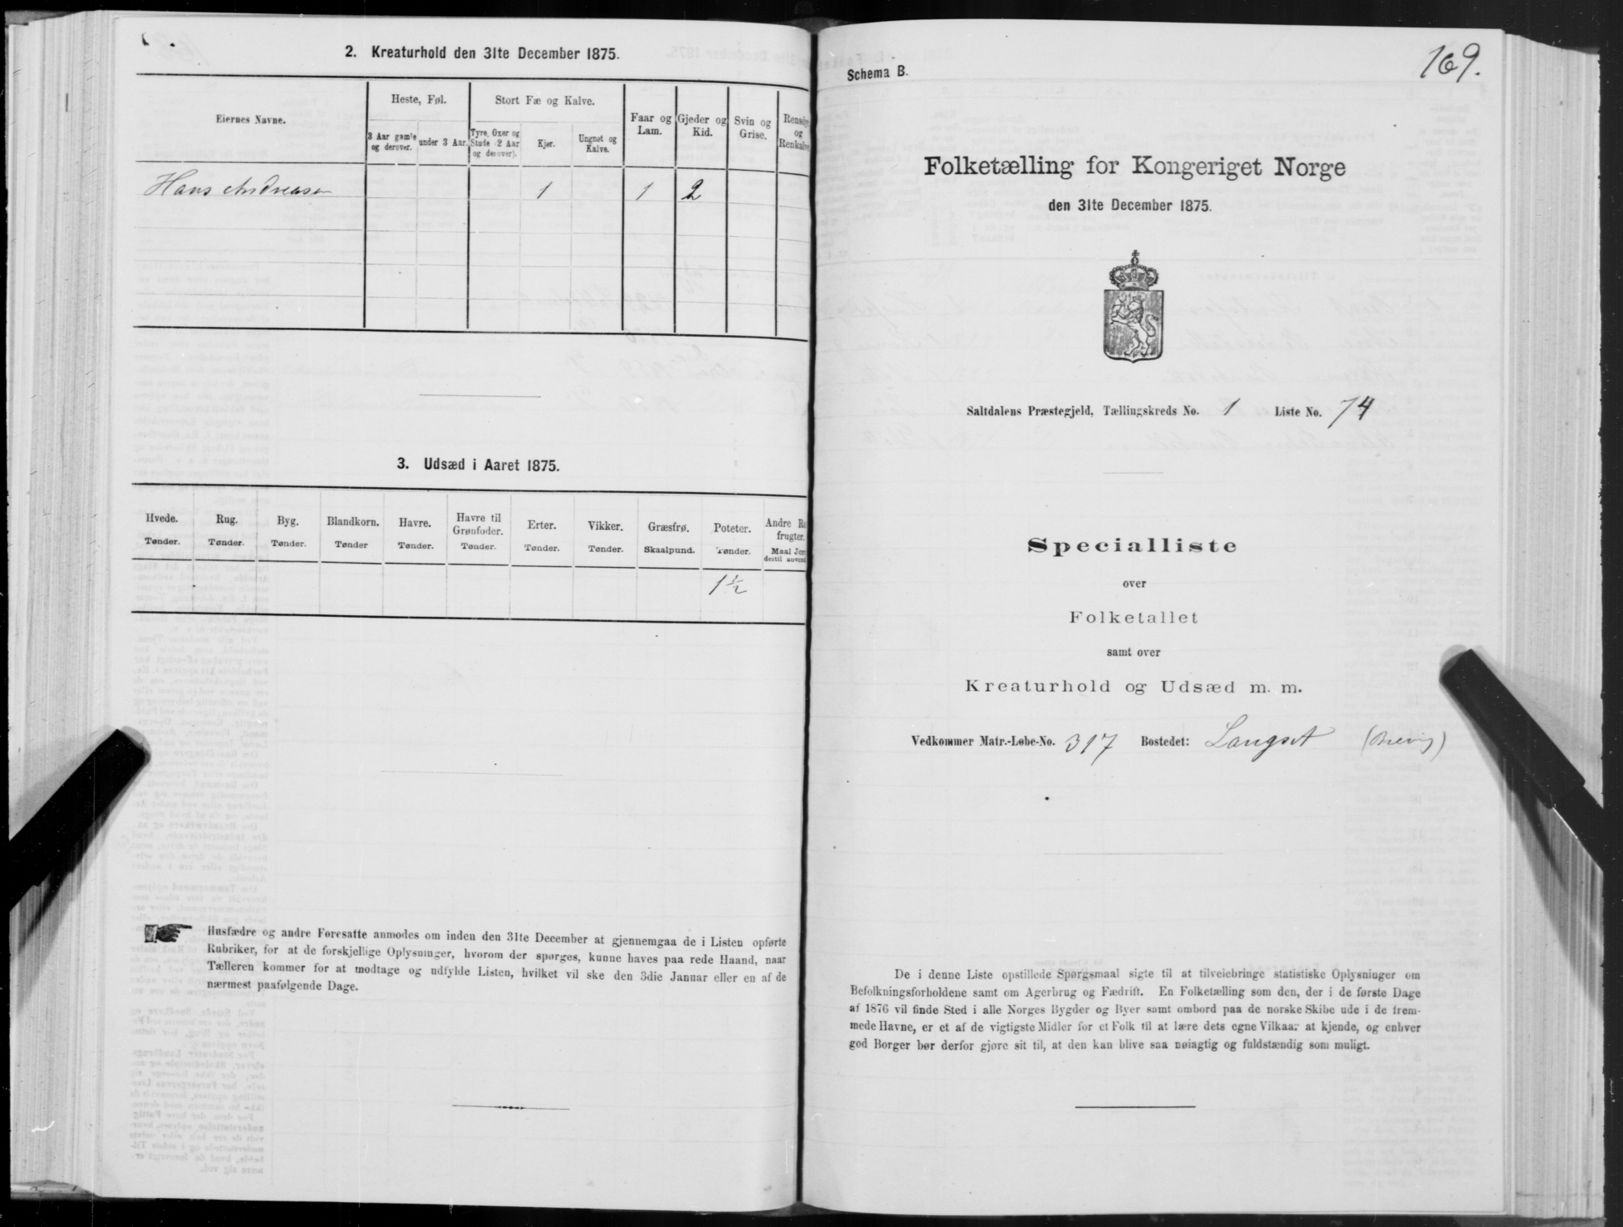 2. Kreaturhold den 31te December 1875.
Eiernes Navne.
Heste, Føl.
Stort Fæ og Kalve.
Faar og Lam.
Gjeder og Kid.
Svin og Grise.
og
3 Aar gamle og derover.
under 3 Aar.
Tyre, Oxer og Stude (2 Aar og derover).
Kjør.
Ungnøt og Kalve.
Hans Andreasen 1 1 2
3. Udsæd i Aaret 1875.
Hvede. Rug. Byg. Blandkorn. Havre. Havre til Grønfoder. Erter. Vikker. Græsfrø. Poteter. Andre
frugter.
Tønder. Tønder. Tønder. Tønder Tønder. Tønder. Tønder. Tønder. Skaalpund. Tønder. Maal
1½
Husfædre og andre Foresatte anmodes om inden den 31te December at gjennemgaa de i Listen opførte
Rubriker, for at de forskjellige Oplysninger, hvorom der spørges, kunne haves paa rede Haand, naar
Tælleren kommer for at modtage og udfylde Listen, hvilket vil ske den 3die Januar eller en af de
nærmest paafølgende Dage.
169.
Schema B.
Folketælling for Kongeriget Norge
den 31te December 1875.
Saltdalens Præstegjeld, Tællingskreds No. 1 Liste No. 74
Specialliste
over
Folketallet
samt over
Kreaturhold og Udsæd m. m.
Vedkommer Matr.-Løbe-No. 317 Bostedet: Langset
De i denne Liste opstillede Spørgsmaal sigte til at tilveiebringe statistiske Oplysninger om
Befolkningsforholdene samt om Agerbrug og Fædrift. En Folketælling som den, der i de første Dage
af 1876 vil finde Sted i alle Norges Bygder og Byer samt ombord paa de norske Skibe ude i de frem-
mede Havne, er et af de vigtigste Midler for et Folk til at lære dets egne Vilkaar at kjende, og enhver
god Borger bør derfor gjøre sit til, at den kan blive saa nøiagtig og fuldstændig som muligt.